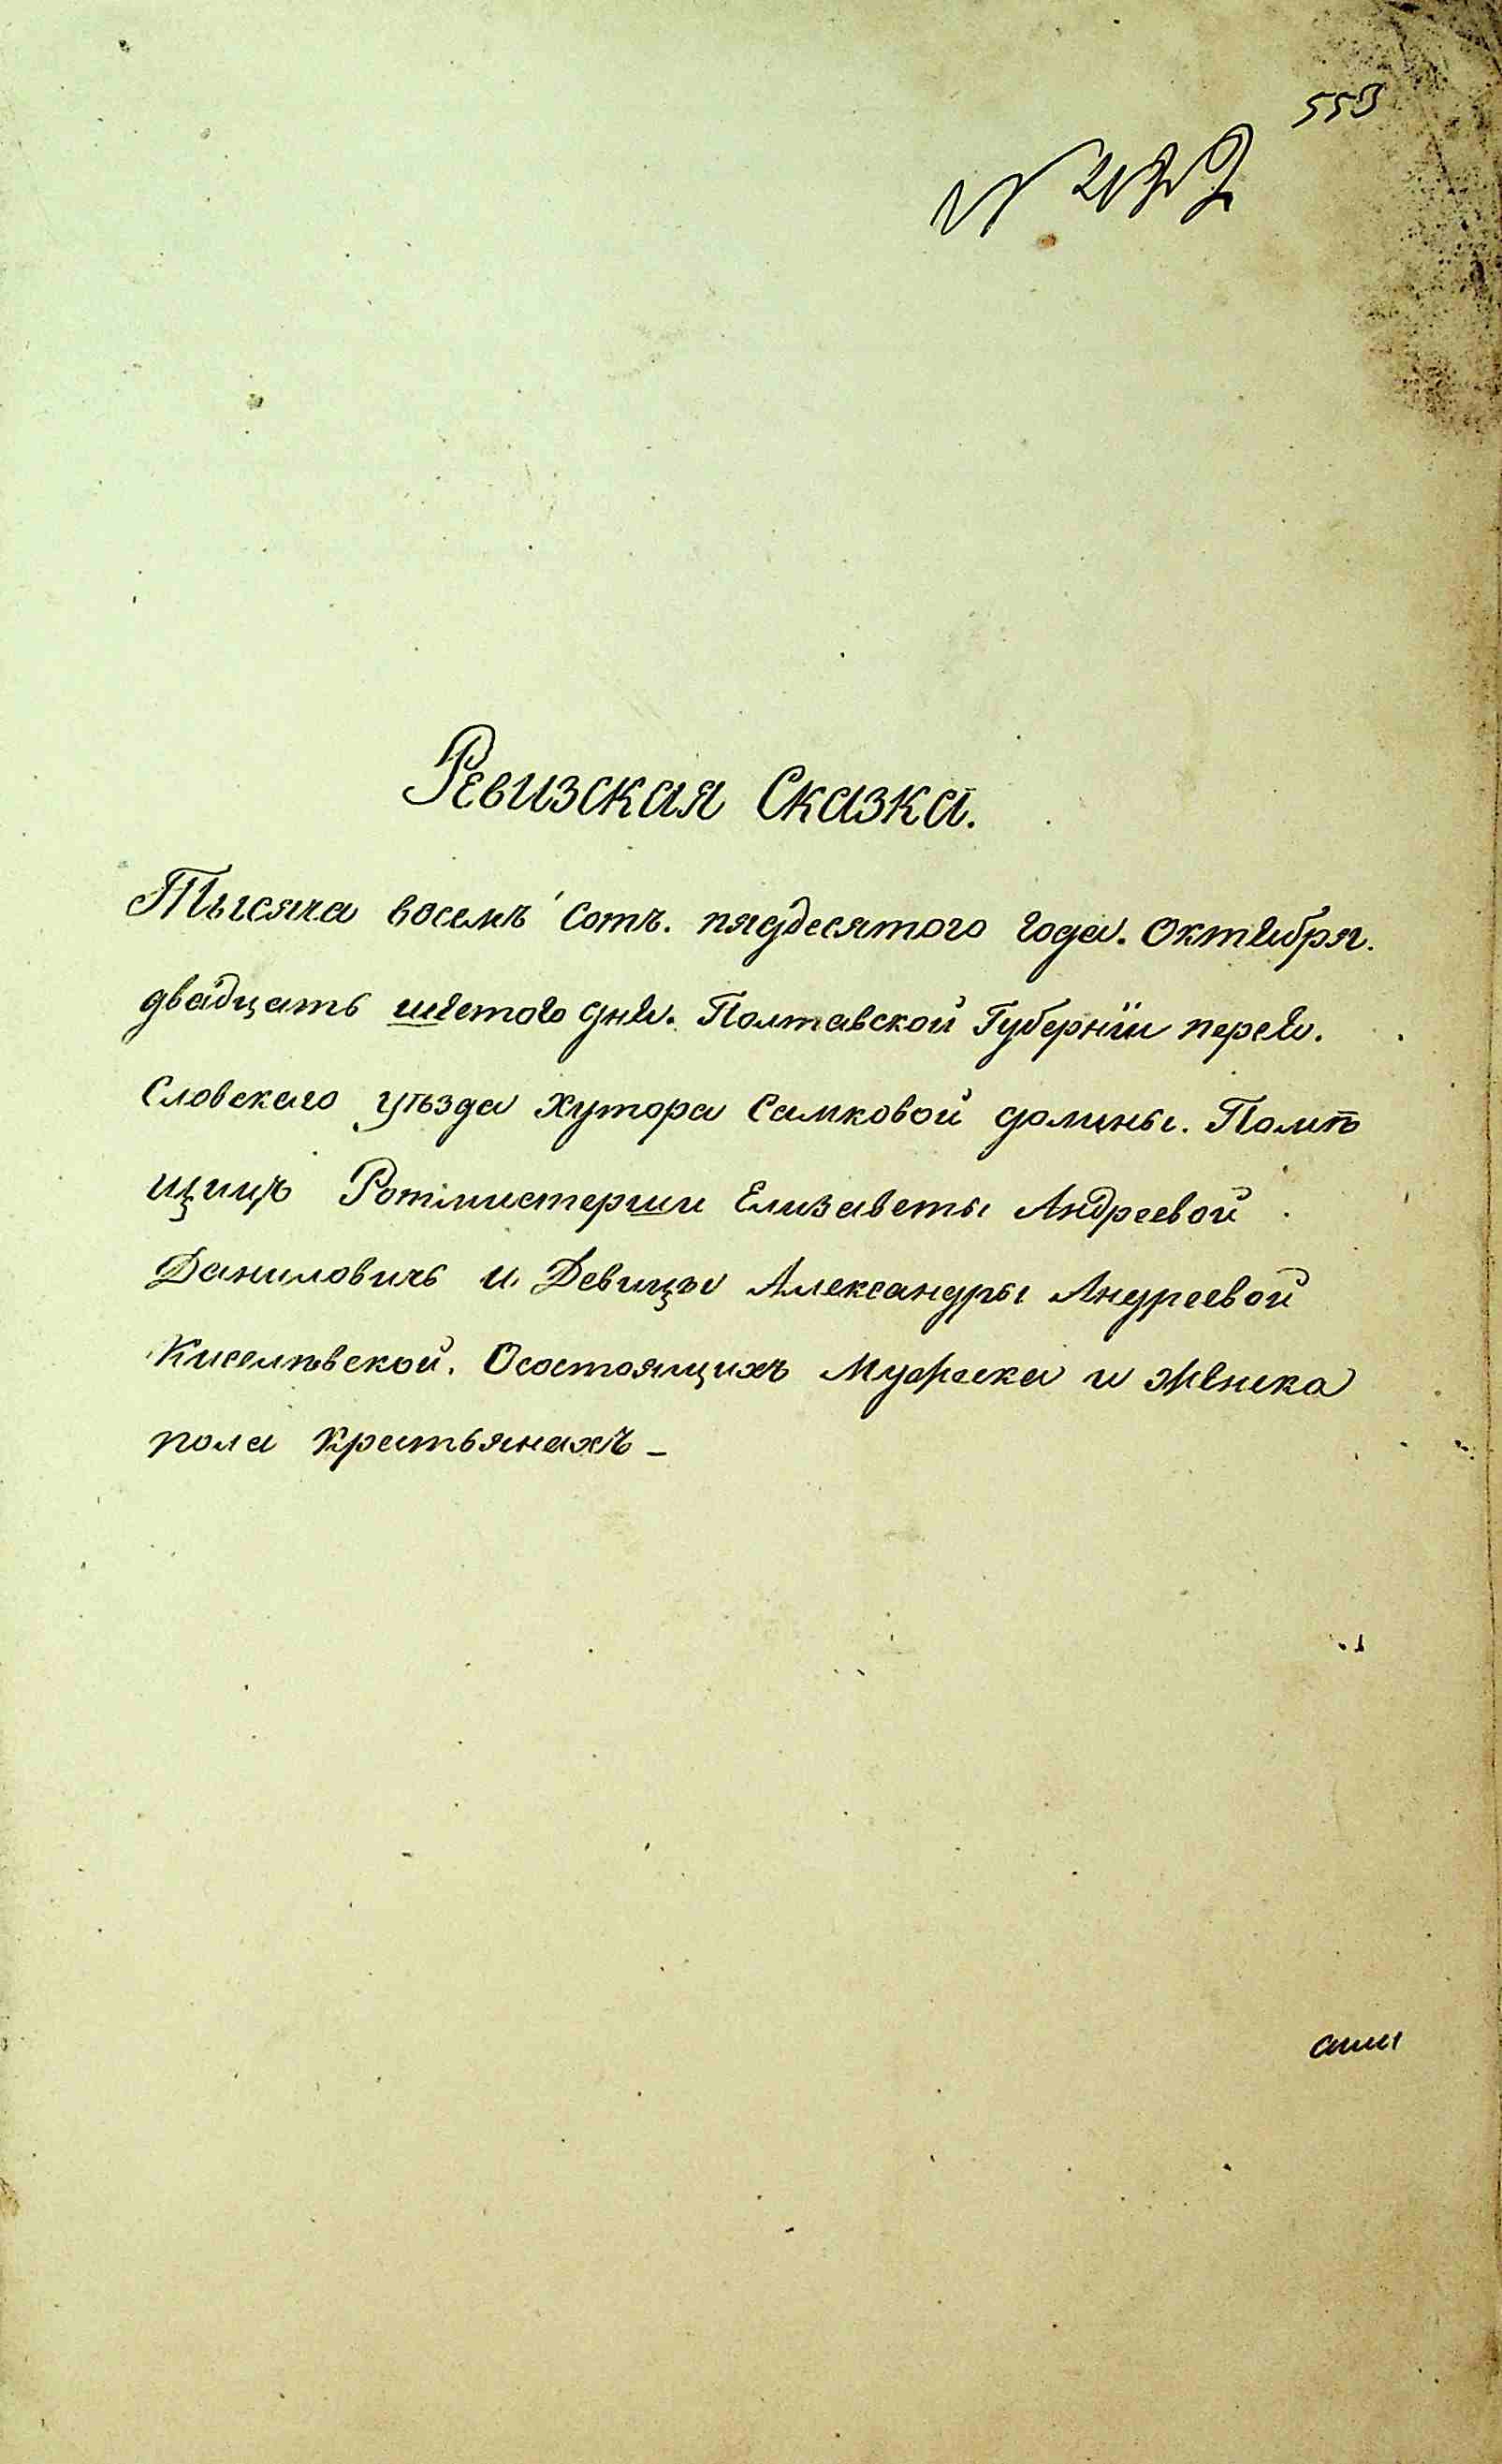 553
Ревизская Сказка.
Тысяча восемъ сотъ. пядбесятого года. Октября.
двадцать шестого дня. Полтавской Губернїи переѧ.
Словскаго уѣзда Хутора Самковой долины. Помѣ
щицъ Ротмистерши Елизаветы Андреевой
Даниловичь и Девицы Александры Андреевой
Киселѣвской. Осостоящихъ Мужеска и женска
пола крестьянахъ –